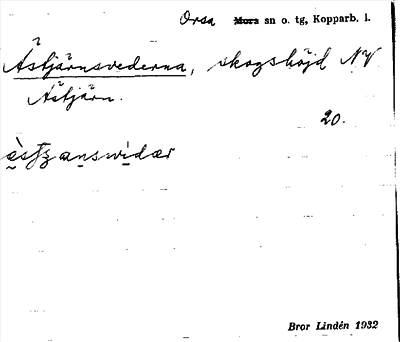 Orsa Mora sn o. tg, Kopparb. l.
Åstjärnsvederna, skogshöjd NV
Åstjärn.
20.
Bror Lindén 1932